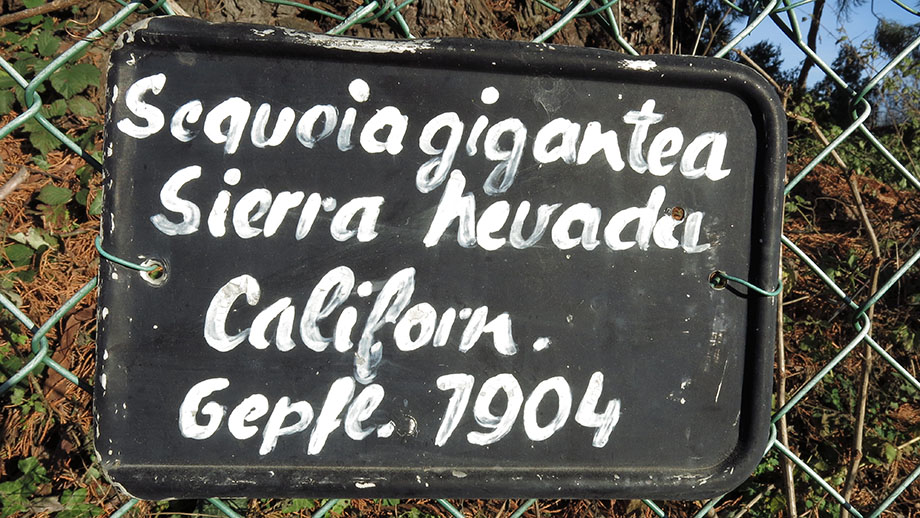 Sequoia gigantea
Sierra nevada
Californ.
Gepfe. 1904